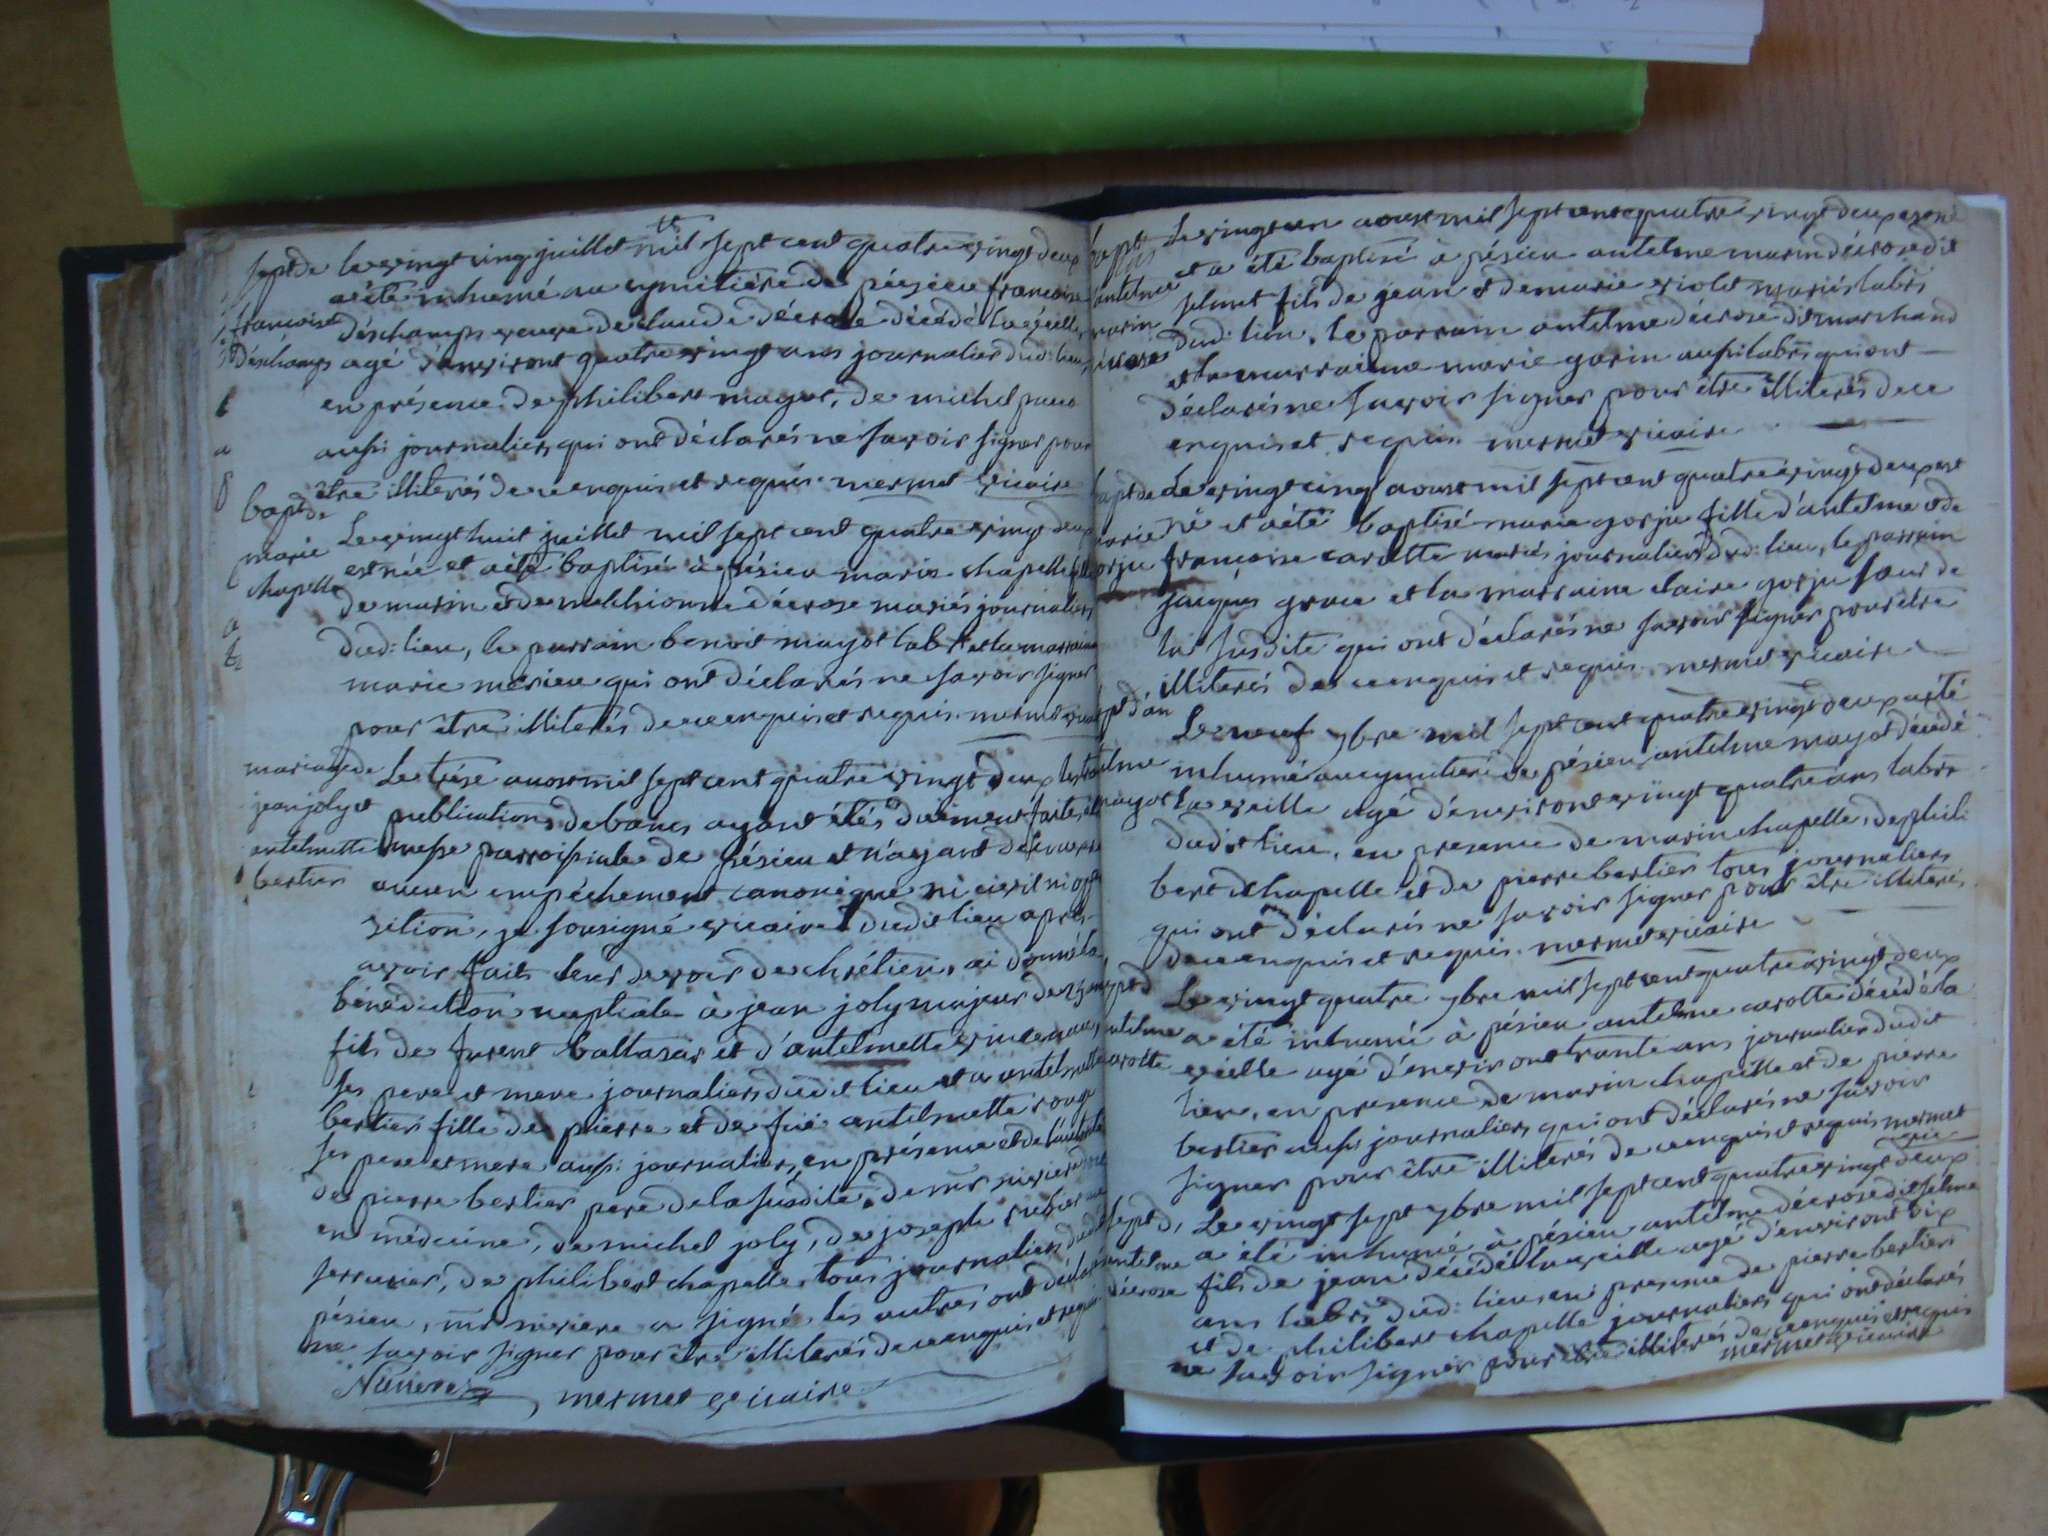 sept de le vingt cinq juillet mil sept cent quatre vingt deux
a été inhumé au cymitiére de pésieu francoise
francoise
déschamps veuve de claude décrose décédé la veille,
déschamps agé d'environt quatre vingt ans journalier dud: lieu,
en présence de philibert mayot, de michel
aussi journaliers qui ont déclarés ne savoir signer pour
être illiterés de ce enquis et requis. mermet vicaire
bapt de
marie
chapelle
Le vingt huit juillet mil sept cent quatre vingt deux
est née et a été baptisé à pésieu marie chapelle fille
de marin et de melchionne décrose mariés journaliers
dud: lieu, le parrain benoit mayot lab: et la marraine
marie mérieu qui ont déclarés ne savoir signer
pour être illiterés de ce enquis et requis. mermet vicaire
mariage de
jean joly et
antelmette
bertier
Le tréze aoust mil sept cent quatre vingt deux les trois
publications de bancs ayant étés duëment faites à la
messe parroissiale de pésieu et n'ayant découvert
aucun empéchement canonique ni civil ni oppo
sition, je sousigné vicaire dudit lieu aprés
avoir fait leur devoir de chrétiens, ai donné la
bénédiction nuptiale à jean joly majeur de 25 ans
fils de furent baltasar et d'antelmette
ses pere et mere journaliers dudit lieu et a antelmette
bertier fille de pierre et de fuë antelmette rouge
ses pere et mere aussi journaliers, en présence et de l'autorité
de pierre bertier pere de la susdite, de mr niviere
en médecine, de michel joly, de joseph
serrurier, de philibert chapelle tous journaliers dudit
pésieu, mr niviere a signé les autres ont déclarés
ne savoir signer pour être illiterés de ce enquis et requis
Niviere mermet vicaire
bapt
antelme
marin
décrose
Le vingt un aoust mil sept cent quatre vingt deux est né
et a été baptisé à pésieu antelme marin décrose dit
selmet fils de jean et de marie violet mariés labrs
dud: lieu, le parrain antelme décrose dit marchand
et la marraine marie gorin aussi labrs qui ont
déclarés ne savoir signer pour être illiterés de ce
enquis et requis mermet vicaire
bapt de
marie
gorju
Le vingt cinq aoust mil sept cent quatre vingt deux est
né et a été baptisé marie gorju fille d'antelme et de
francoise carotte mariés journaliers dud: lieu, le parrain
jacques et la marraine claire gorju sœur de
la susdite qui ont déclarés ne savoir signer pour être
illiterés de ce enquis et requis. mermet vicaire
sept d'an
telme
mayot
Le neuf 7bre mil sept cent quatre vingt deux a été
inhumé au cymitiére de pésieu antelme mayot décédé
la veille agé d'environt vingt quatre ans labr
dudit lieu, en presence de marin chapelle, de phili
bert chapelle et de pierre bertier tous journaliers
qui ont déclarés ne savoir signer pour être illiterés
de ce enquis et requis. mermet vicaire
sept d
antelme
carotte
Le vingt quatre 7bre mil sept cent quatre vingt deux
a été inhumé à pésieu antelme carotte décédé la
veille agé d'environt trante ans journalier dudit
lieu, en presence de marin chapelle et de pierre
bertier aussi journaliers qui ont déclarés ne savoir
signer pour être illiterés de ce enquis et requis mermet
vic:
sept d,
antelme
décrose
Le vingt sept 7bre mil sept cent quatre vingt deux
a été inhumé à pésieu antelme décrose dit selme
fils de jean décédé la veille agé d'environt dix
ans labrs dud: lieu en presence de pierre bertier
et de philibert chapelle journaliers qui ont déclarés
ne savoir signer pour être illiterés de ce enquis et requis
mermet vicaire